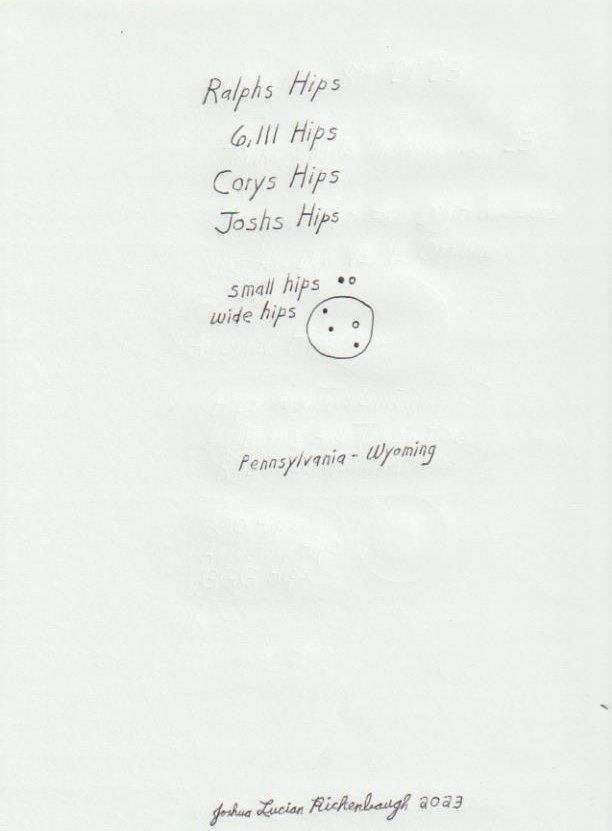 Ralphs Hips
6,111 Hips
Corys Hips
Joshs Hips
small hips
wide hips
Pennsylvania - Wyoming
Joshua Lucian Richenbaugh 2023